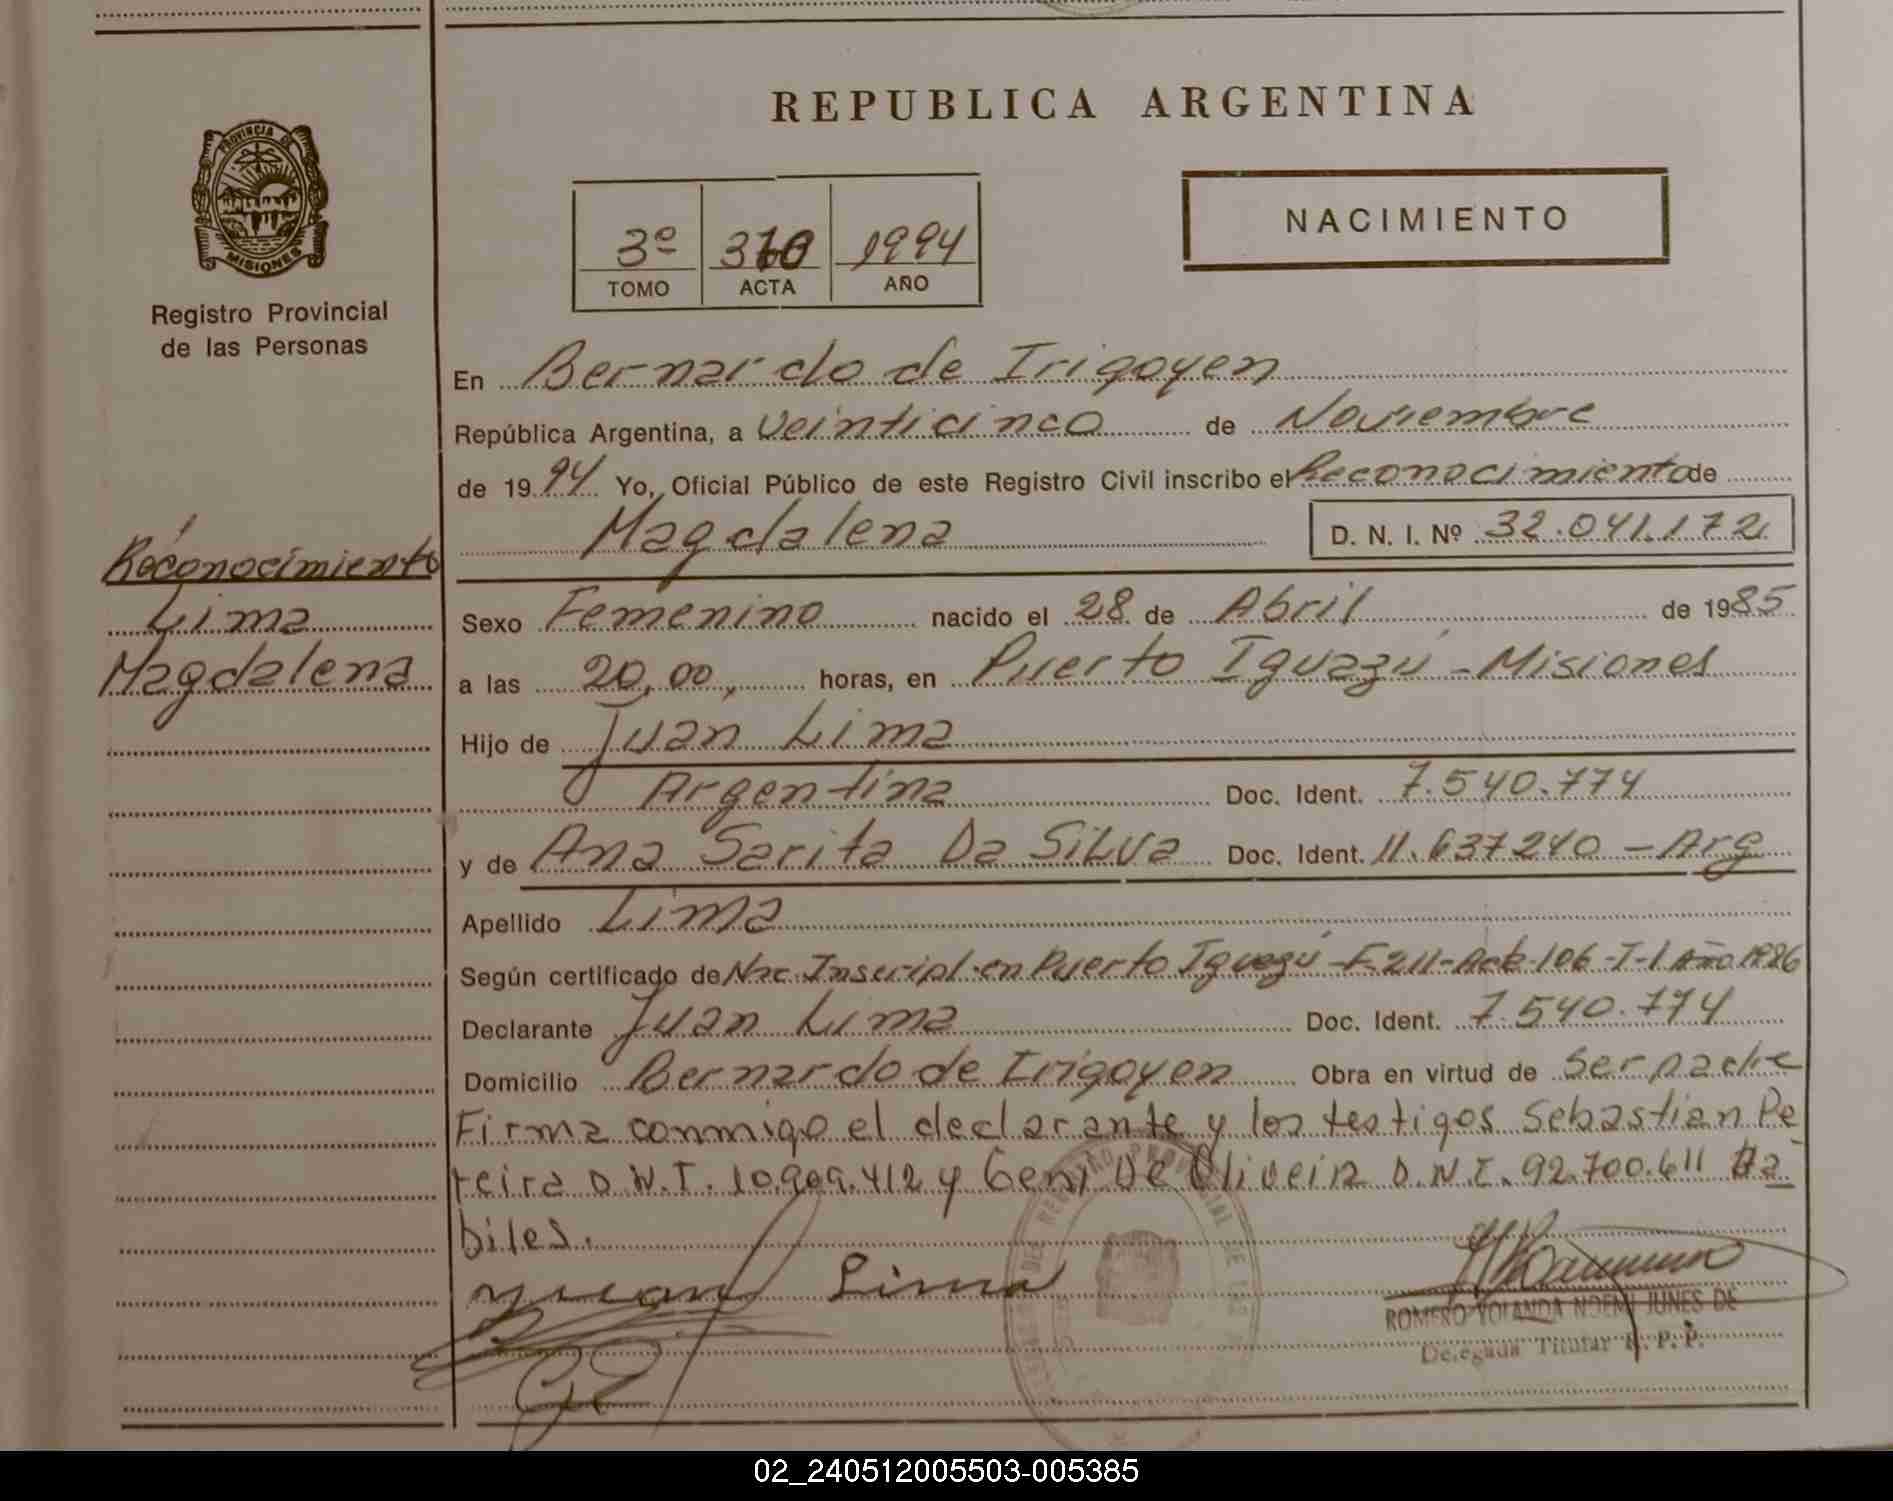 REPUBLICA ARGENTINA
PROVINCIA DE
MISIONES
Registro Provincial
de las Personas
3º 1994
TOMO ACTA AÑO
NACIMIENTO
En Bernardo de Irigoyen
República Argentina, a Veinticinco de Noviembre
de 1994 Yo, Oficial Público de este Registro Civil inscribo el Reconocimiento de
Magdalena D. N. I. Nº 32.041.172
Reconocimiento
Lima
Magdalena
Sexo Femenino nacido el 28 de Abril de 1985
a las 20,00, horas, en Puerto Iguazú - Misiones
Hijo de Juan Lima
Argentina Doc. Ident. 7.540.774
y de Ana Sarita Da Silva Doc. Ident. 11.637240 - Arg
Apellido Lima
Según certificado de Nac. Inscript. en Puerto Iguazú - F. 211 - Acta 106 - T-1 Año 1986
Declarante Juan Lima Doc. Ident. 7.540.774
Domicilio Bernardo de Irigoyen Obra en virtud de Ser padre
Firma conmigo el declarante y los testigos Sebastian Pe
reira D.N.I. 10.909.412 y Geni De Oliveira D.N.I. 92.700.611 Há
biles.
Juan Lima
ROMERO YOLANDA NOEMI JUNES DE
Delegada Titular R. P. P.
02_240512005503-005385